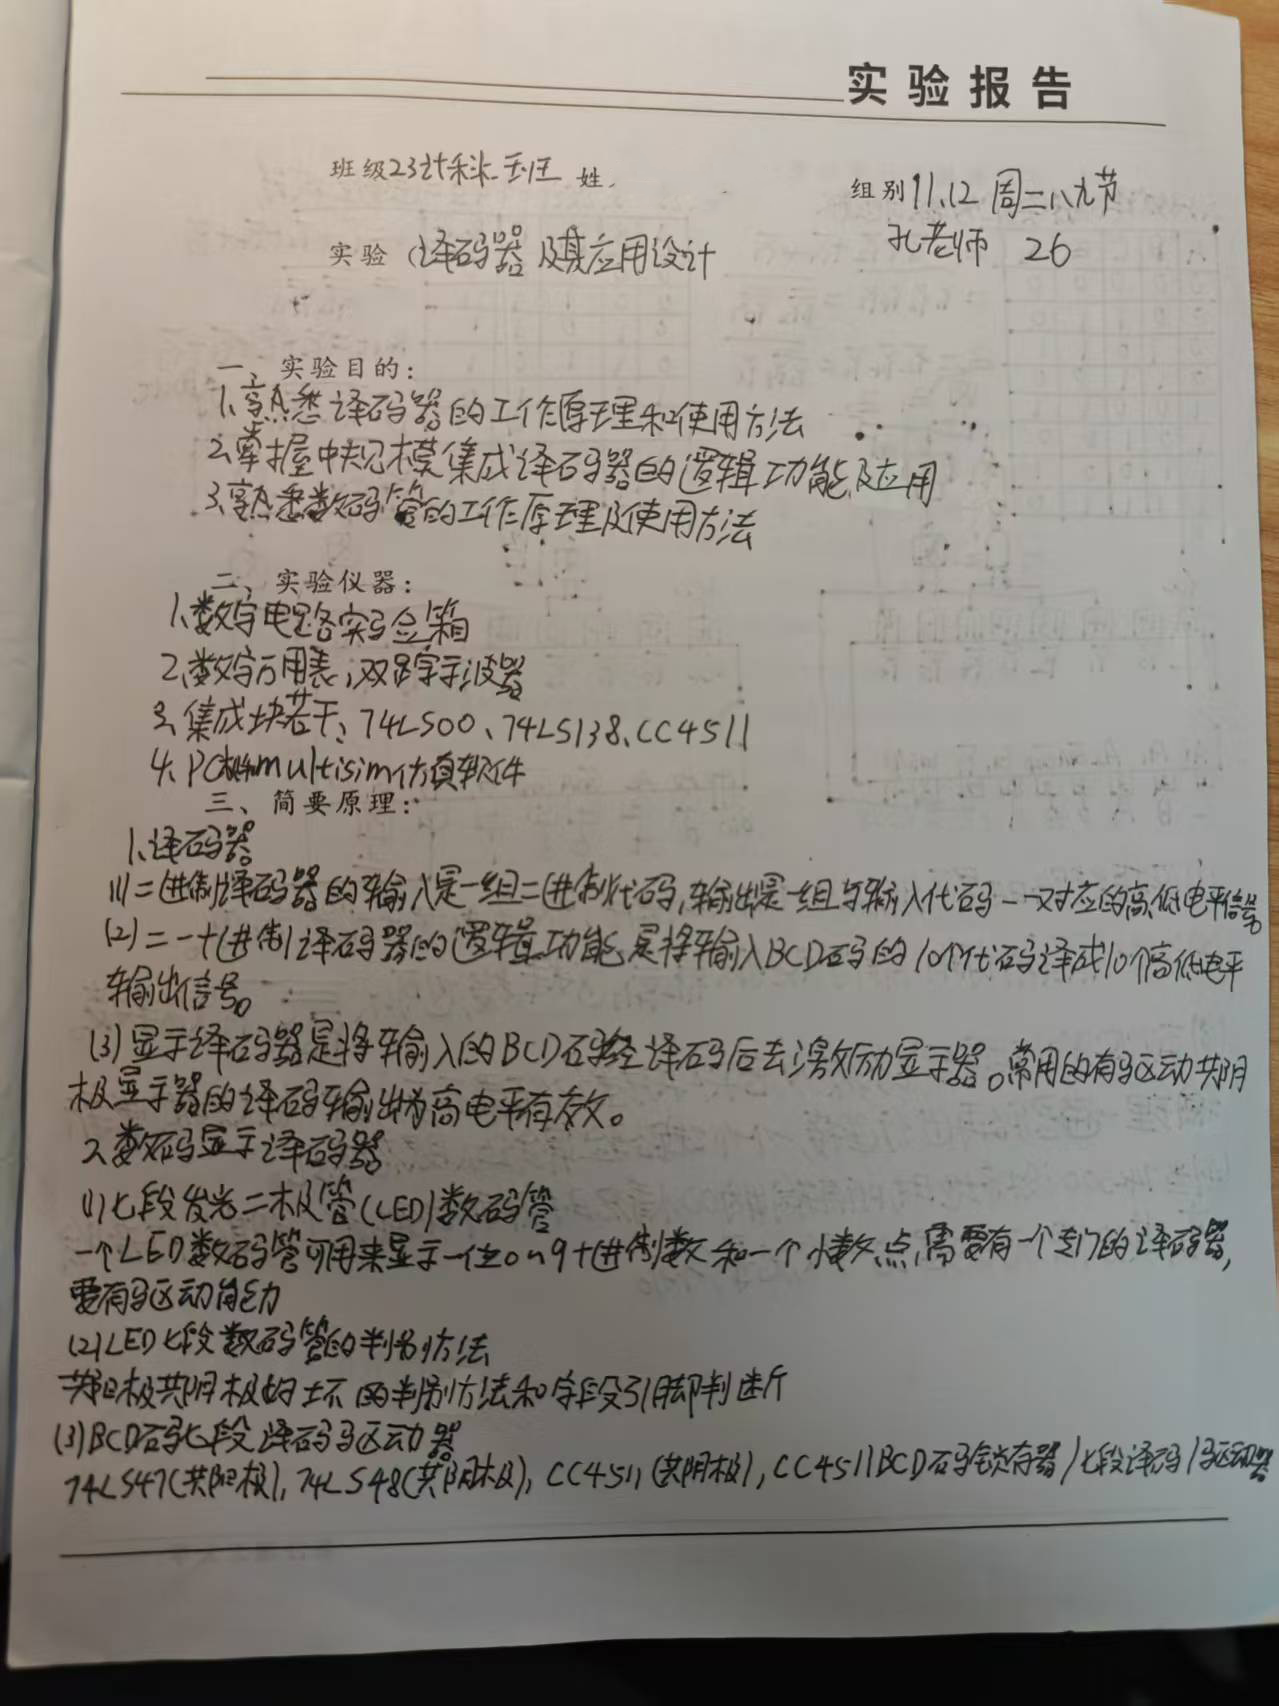 实验报告
班级23计科五班 姓 组别11、12 周二八九节
孔老师 26
实验 译码器及其应用设计
一、实验目的：
1、熟悉译码器的工作原理和使用方法
2、掌握中规模集成译码器的逻辑功能及应用
3、熟悉数码管的工作原理及使用方法
二、实验仪器：
1、数字电路实验箱
2、数字万用表，双踪示波器
3、集成块若干、74LS00、74LS138、CC4511
4、PC机和multisim仿真软件
三、简要原理：
1、译码器
(1)二进制译码器的输入是一组二进制代码，输出是一组与输入代码一一对应的高低电平信号。
(2)二一十进制译码器的逻辑功能是将输入BCD码的10个代码译成10个高低电平
输出信号。
(3)显示译码器是将输入的BCD码经译码后去激励显示器。常用的有驱动共阴
极显示器的译码输出为高电平有效。
2、数码显示译码器
(1)七段发光二极管(LED)数码管
一个LED数码管可用来显示一位0~9十进制数和一个小数点，需要有一个专门的译码器，
要有驱动能力
(2)LED七段数码管的判别方法
共阳极共阴极好坏的判别方法和字段引脚判断
(3)BCD码七段译码驱动器
74LS47(共阳极)，74LS48(共阴极)，CC4511(共阴极)，CC4511BCD码锁存器/七段译码/驱动器